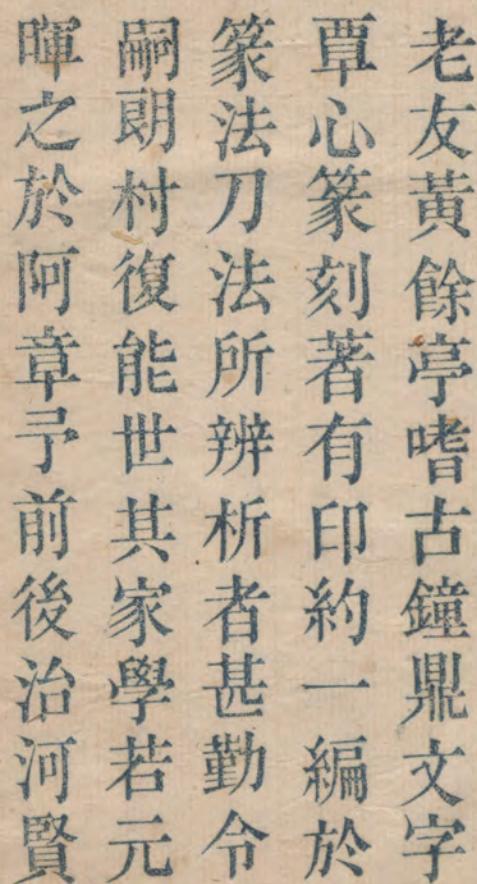 老友黃餘亭嗜古鐘鼎文字
覃心篆刻著有印約一編於
篆法刀法所辨析者甚勤令
嗣朗村復能世其家學若元
暉之於阿章予前後治河賢